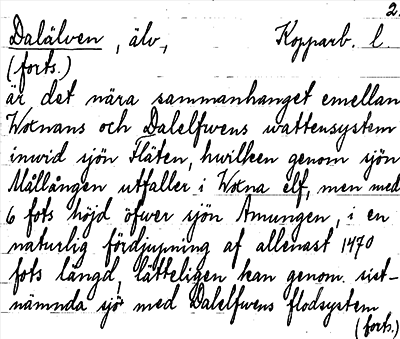 2.
Dalälven, älv, Kopparb. l.
(forts.)
är det nära sammanhanget emellan
Woxnans och Dalelfwens wattensystem
inwid sjön Fläten, hwilken genom sjön
Mållången utfaller i Woxna elf, men med
6 fots höjd öfwer sjön Amungen, i en
naturlig fördjupning af allenast 1470
fots längd, lätteligen kan genom sist-
nämnda sjö med Dalelfwens flodsystem
(forts.)